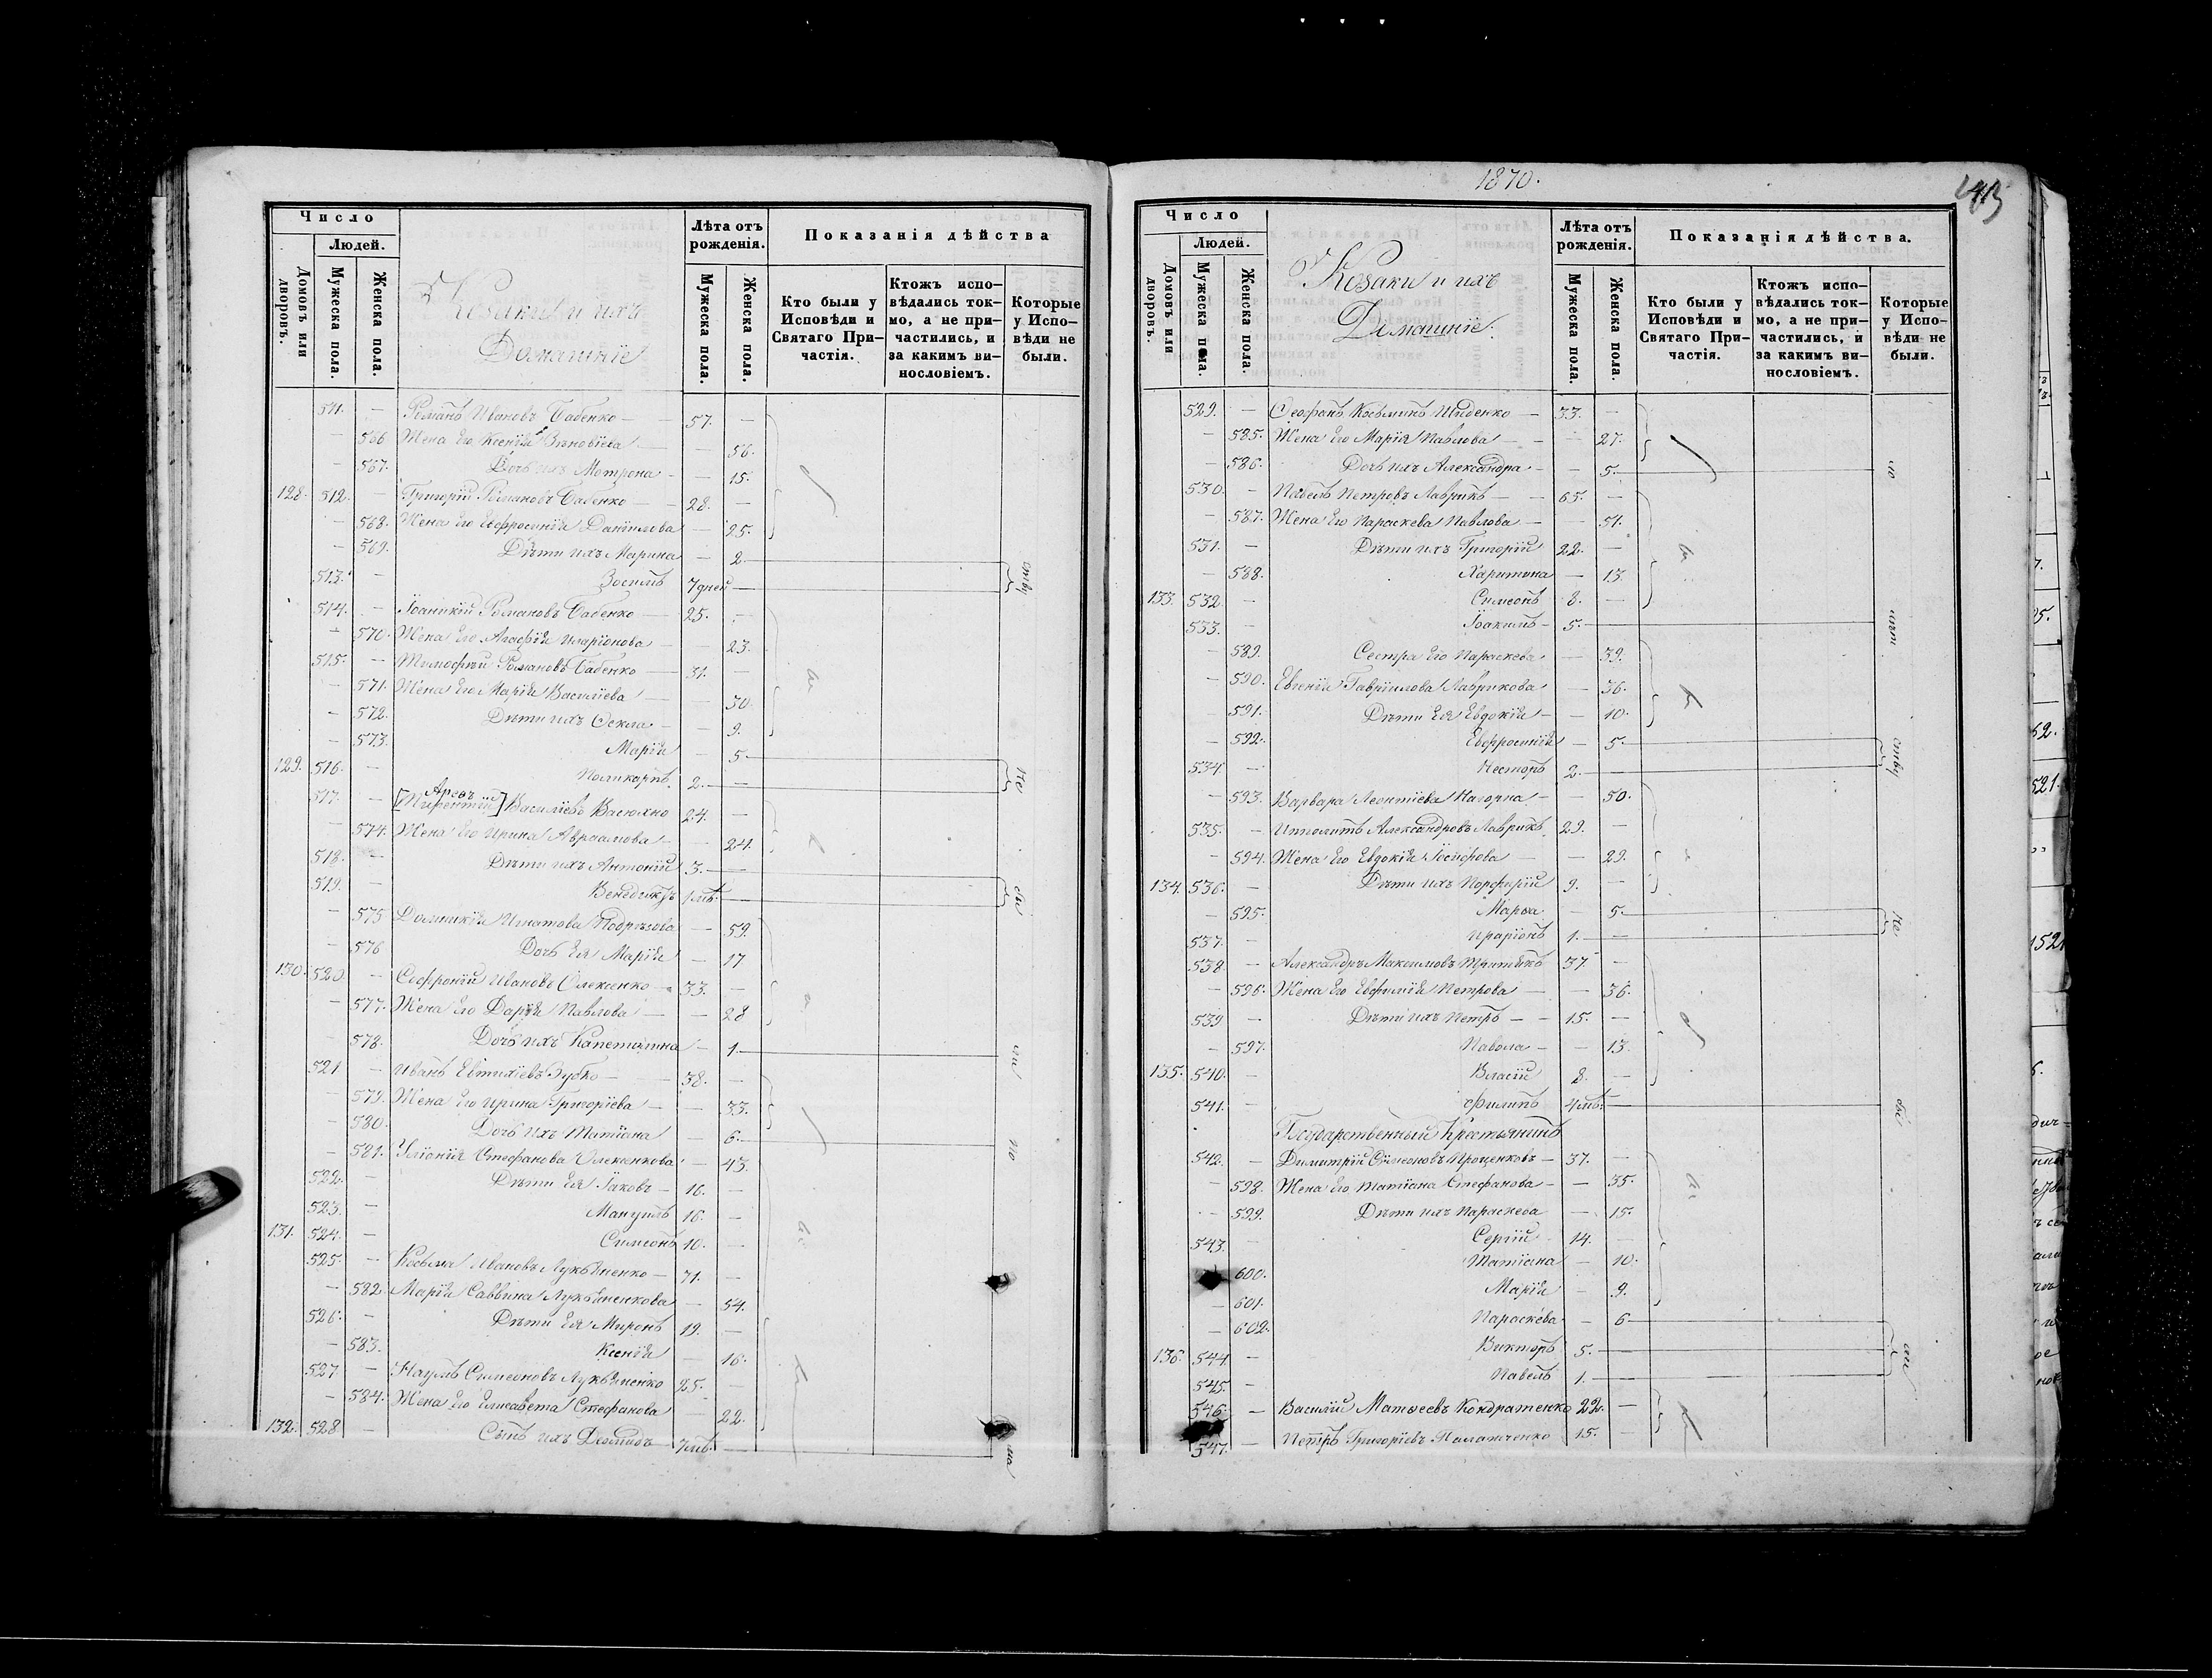 Число
Людей.
Домовъ или дворовъ.
Мужеска пола.
Женска пола.
Козаки и ихъ
Домашніе
Лѣта отъ рожденія.
Мужеска пола.
Женска пола.
Показанія дѣйства
Кто были у Исповѣди и Святаго Причастія.
Ктожъ исповѣдались токмо, а не причастились, и за какимъ винословіемъ.
Которые у Исповѣди не были.
511. — Романъ Ивановъ Бабенко — 57. —
— 566 Жена его Ксенія Зѣновіева — 56.
— 567. Дочь ихъ Мотрона — 15.
128. 512. — Григорій Романовъ Бабенко — 28. —
— 568. Жена его Евфросинія Даніилова — 25.
— 569. Дѣти ихъ Марина — 2.
513. — Зосимъ 7 дней —
514. — Іоаникій Романовъ Бабенко — 25. —
— 570. Жена его Агафія Иларіонова — 23.
515. — Тимофѣй Романовъ Бабенко — 31. —
— 571. Жена его Марія Василіева — 30.
— 572. Дѣти ихъ Ѳекла — 9.
— 573. Марія — 5.
129. 516. — Поликарпъ 2. —
517. — [Терентій] Василіевъ Васюхно 24. —
— 574. Жена его Ирина Авраамова — 24.
518. — Дѣти ихъ Антоній 3. —
519. — Венедиктъ 1 мѣ. —
— 575 Домникія Игнатова — 59.
— 576 Дочь ея Марія — 17
130. 520. — Софроній Ивановъ Олексенко — 33. —
— 577. Жена его Дарія Павлова — 28
— 578. Дочь ихъ Капетолина — 1.
521 — Иванъ Евтихіевъ Зубко — 38. —
— 579. Жена его Ирина Григоріева — 33.
— 580. Дочь ихъ Татіана — 6.
— 581. Уліонія Стефанова Олексенкова — 43.
522. — Дѣти ея Іаковъ — 16. —
523. — Мануилъ 16. —
131. 524. — Симеонъ 10. —
525. — Косьма Ивановъ Лукьяненко — 71. —
— 582. Марія Саввина Лукьяненкова — 54.
526. — Дѣти ея Миронъ 19. —
— 583. Ксенія — 16.
527. — Наумъ Симеоновъ Лукьяненко 25. —
— 584. Жена его Елисавета Стефанова — 22.
132. 528 — Сынъ ихъ Деомидъ — 7 мѣ. —
1870.
Число
Людей.
Домовъ или дворовъ.
Мужеска пола.
Женска пола.
Козаки и ихъ
Домашніе.
Лѣта отъ рожденія.
Мужеска пола.
Женска пола.
Показанія дѣйства.
Кто были у Исповѣди и Святаго Причастія.
Ктожъ исповѣдались токмо, а не причастились, и за какимъ винословіемъ.
Которые у Исповѣди не были.
529. — Ѳеофанъ Косьминъ — 33. —
— 585. Жена его Марія Павлова — 27.
— 586. Дочь ихъ Александра — 5.
530. — Павелъ Петровъ Лаврикъ — 65. —
— 587. Жена его Параскева Павлова — 51.
531. — Дѣти ихъ Григорій 22. —
— 588. Харитина — 13.
133. 532. — Симеонъ 8. —
533. — Іоакимъ 5.
— 589. Сестра его Параскева — 39.
— 590. Евгенія Гавріилова Лаврикова — 36.
— 591. Дѣти ея Евдокія — 10.
— 592. Евфросинія — 5.
534. — Несторъ 2. —
— 593. Варвара Леонтіева Нагорна — 50.
535. — Ипполитъ Александровъ Лаврикъ 29. —
— 594. Жена его Евдокія Іосифова — 29.
134. 536. — Дѣти ихъ Порфирій 9. —
— 595. Марѳа — 5.
537. — Иларіонъ 1. —
538. — Александръ Максимовъ 37. —
— 596. Жена его Евфимія Петрова — 36.
539 — Дѣти ихъ Петръ — 15. —
— 597. Павола — 13.
135. 540. — Власій 8. —
541. — Филипъ 4 мѣ. —
Государственный Крестьянинъ
542. — Димитрій Симеоновъ Проценковъ — 37. —
— 598. Жена его Татіана Стефанова — 35.
— 599. Дѣти ихъ Параскева — 15.
543. — Сергій 14. —
600. Татіана — 10.
— 601. Марія — 9.
— 602. Параскева — 6
136. 544. — Викторъ 5. —
545. — Павелъ 1. —
546. — Василій Матѳеевъ Кондратенко 22. —
547. — Петръ Григоріевъ 15. —